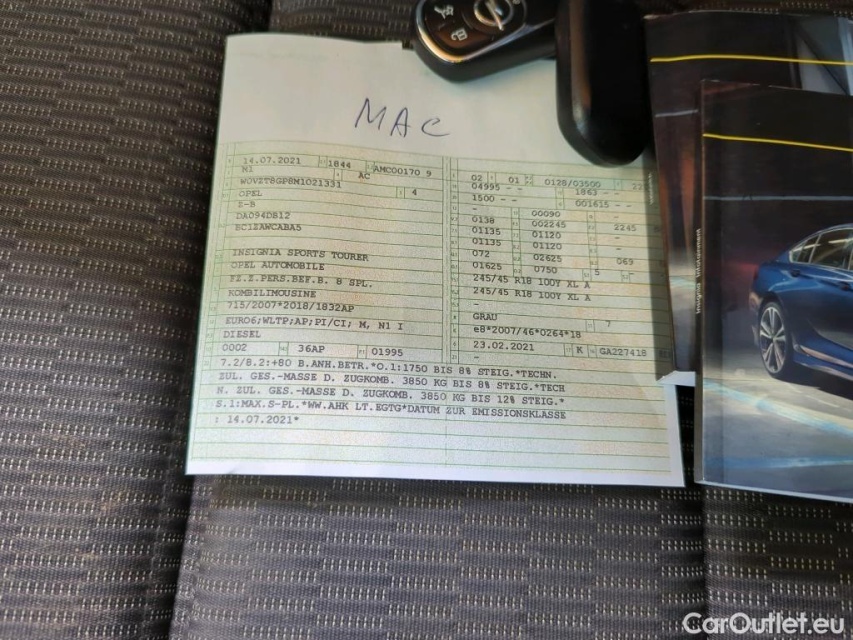 MAC
14.07.2021 1844 AMC00170 9
M1 AC
W0VZT8GP8M1021331 4
OPEL
Z-B
DA094DB12
BC12AWCABA5
INSIGNIA SPORTS TOURER
OPEL AUTOMOBILE
FZ.Z.PERS.BEF.B. 8 SPL.
KOMBILIMOUSINE
715/2007*2018/1832AP
EURO6;WLTP;AP;PI/CI; M, N1 I
DIESEL
0002 36AP 01995
02 01 0128/03500
04995 - - 1863 - -
1500 - - 001615 - -
- 00090
0138 002245 2245
01135 01120 -
01135 01120 -
072 02625 069
01625 0750 5 -
245/45 R18 100Y XL A
245/45 R18 100Y XL A
-
GRAU 7
e8*2007/46*0264*18
23.02.2021 K GA227418
-
7.2/8.2:+80 B.ANH.BETR.*O.1:1750 BIS 8% STEIG.*TECHN.
ZUL. GES.-MASSE D. ZUGKOMB. 3850 KG BIS 8% STEIG.*TECH
N. ZUL. GES.-MASSE D. ZUGKOMB. 3850 KG BIS 12% STEIG.*
S.1:MAX.S-PL.*WW.AHK LT.EGTG*DATUM ZUR EMISSIONSKLASSE
: 14.07.2021*
CarOutlet.eu